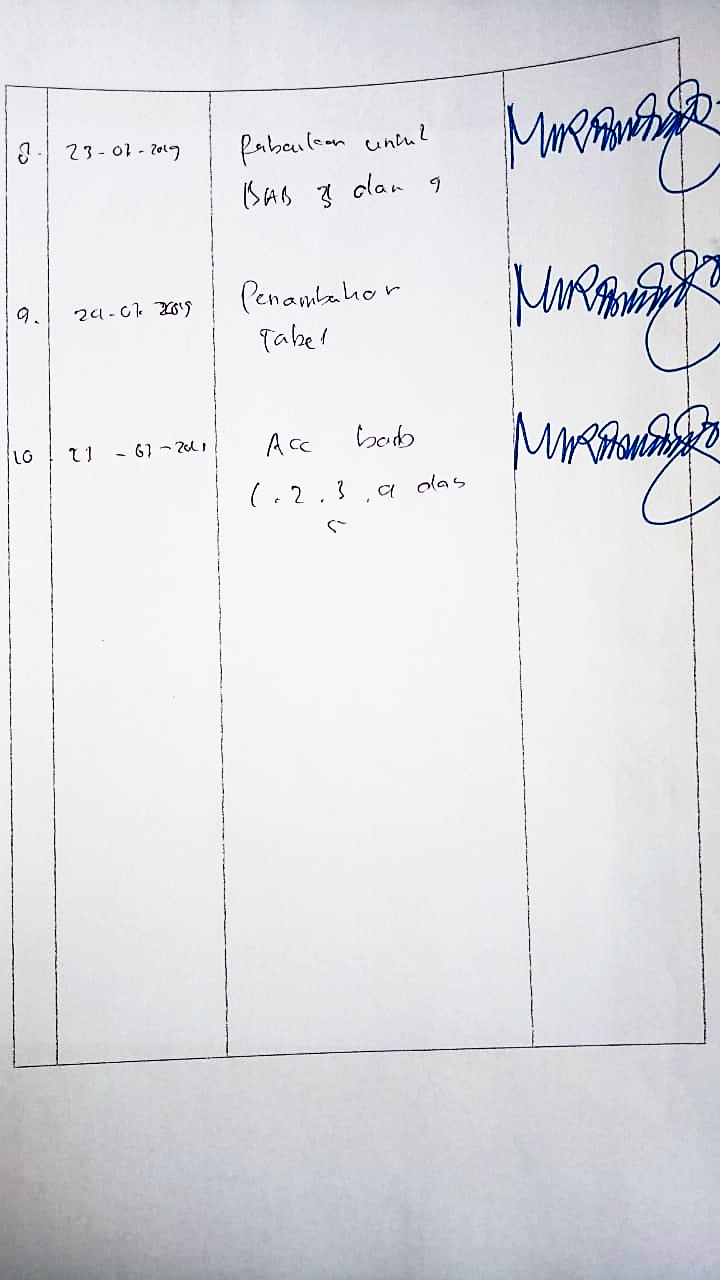 8. 23-07-2019
Pabaikan untuk
BAB 3 dan 4
9. 24-07-2019
Penambahan
Tabel
10
Acc bab
1, 2, 3, 4 dan
5